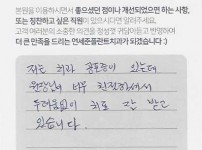 본원을 이용하시면서 좋으셨던 점이나 개선되었으면 하는 사항,
또는 칭찬하고 싶은 직원이 있으시다면 알려주세요.
고객 여러분의 소중한 의견을 정성껏 귀담아듣고 반영하여
더 큰 만족을 드리는 연세준플란트치과가 되겠습니다 :)
저는 치과 공포증이 있는데
원장님이 너무 친절하셔서
두려움없이 치료 잘 받고
있습니다